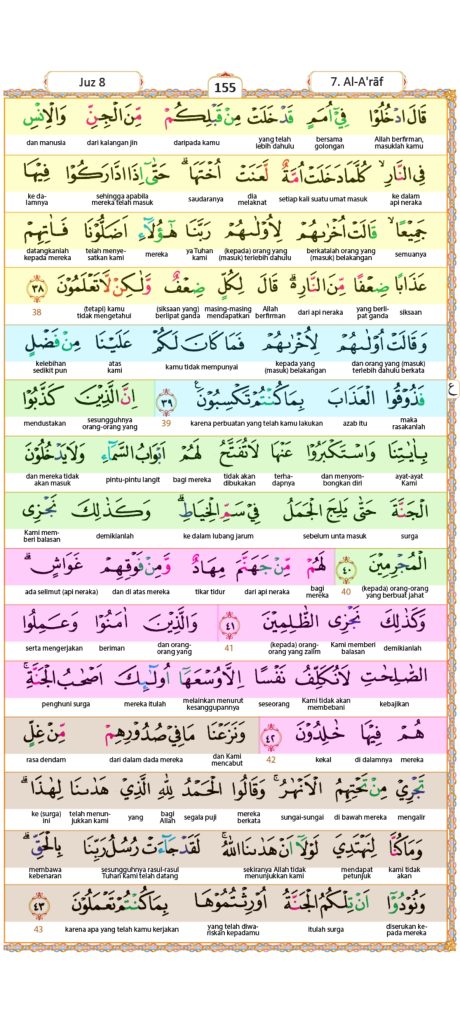 Juz 8
155
7. Al-A'rāf
قَالَ ادْخُلُوْا فِيْٓ اُمَمٍ قَدْ خَلَتْ مِنْ قَبْلِكُمْ مِّنَ الْجِنِّ وَالْاِنْسِ
Allah berfirman, masuklah kamu bersama golongan yang telah lebih dahulu daripada kamu dari kalangan jin dan manusia
فِى النَّارِۙ كُلَّمَا دَخَلَتْ اُمَّةٌ لَّعَنَتْ اُخْتَهَاۗ حَتّٰٓى اِذَا ادَّارَكُوْا فِيْهَا
ke dalam api neraka setiap kali suatu umat masuk dia melaknat saudaranya sehingga apabila mereka telah masuk ke dalamnya
جَمِيْعًاۙ قَالَتْ اُخْرٰىهُمْ لِاُوْلٰىهُمْ رَبَّنَا هٰٓؤُلَاۤءِ اَضَلُّوْنَا فَاٰتِهِمْ
semuanya berkatalah orang yang (masuk) belakangan (kepada) orang yang (masuk) terlebih dahulu ya Tuhan Kami mereka telah menyesatkan kami datangkanlah kepada mereka
عَذَابًا ضِعْفًا مِّنَ النَّارِۗ قَالَ لِكُلٍّ ضِعْفٌ وَّلٰكِنْ لَّا تَعْلَمُوْنَ ٣٨
siksaan yang berlipat ganda dari api neraka Allah berfirman masing-masing mendapatkan (siksaan yang) berlipat ganda (tetapi) kamu tidak mengetahui 38
وَقَالَتْ اُوْلٰىهُمْ لِاُخْرٰىهُمْ فَمَا كَانَ لَكُمْ عَلَيْنَا مِنْ فَضْلٍ
dan orang yang (masuk) terlebih dahulu berkata kepada yang (masuk) belakangan kamu tidak mempunyai atas kami kelebihan sedikit pun
فَذُوْقُوا الْعَذَابَ بِمَا كُنْتُمْ تَكْسِبُوْنَ ࣖ ٣٩ اِنَّ الَّذِيْنَ كَذَّبُوْا
ع
maka rasakanlah azab itu karena perbuatan yang telah kamu lakukan 39 sesungguhnya orang-orang yang mendustakan
بِاٰيٰتِنَا وَاسْتَكْبَرُوْا عَنْهَا لَا تُفَتَّحُ لَهُمْ اَبْوَابُ السَّمَاۤءِ وَلَا يَدْخُلُوْنَ
ayat-ayat Kami dan menyombongkan diri terhadapnya tidak akan dibukakan bagi mereka pintu-pintu langit dan mereka tidak akan masuk
الْجَنَّةَ حَتّٰى يَلِجَ الْجَمَلُ فِيْ سَمِّ الْخِيَاطِۗ وَكَذٰلِكَ نَجْزِى
surga sebelum unta masuk ke dalam lubang jarum demikianlah Kami memberi balasan
الْمُجْرِمِيْنَ ٤٠ لَهُمْ مِّنْ جَهَنَّمَ مِهَادٌ وَّمِنْ فَوْقِهِمْ غَوَاشٍۗ
(kepada) orang-orang yang berbuat jahat 40 bagi mereka dari api neraka tikar tidur dan di atas mereka ada selimut (api neraka)
وَكَذٰلِكَ نَجْزِى الظّٰلِمِيْنَ ٤١ وَالَّذِيْنَ اٰمَنُوْا وَعَمِلُوا
demikianlah Kami memberi balasan (kepada) orang-orang yang zalim 41 dan orang-orang yang beriman serta mengerjakan
الصّٰلِحٰتِ لَا نُكَلِّفُ نَفْسًا اِلَّا وُسْعَهَآ اُولٰۤىِٕكَ اَصْحٰبُ الْجَنَّةِۚ
kebajikan Kami tidak akan membebani seseorang melainkan menurut kesanggupannya mereka itulah penghuni surga
هُمْ فِيْهَا خٰلِدُوْنَ ٤٢ وَنَزَعْنَا مَا فِيْ صُدُوْرِهِمْ مِّنْ غِلٍّ
mereka di dalamnya kekal 42 dan Kami mencabut dari dalam dada mereka rasa dendam
تَجْرِيْ مِنْ تَحْتِهِمُ الْاَنْهٰرُۚ وَقَالُوا الْحَمْدُ لِلّٰهِ الَّذِيْ هَدٰىنَا لِهٰذَاۗ
mengalir di bawah mereka sungai-sungai mereka berkata segala puji bagi Allah yang telah menunjukkan kami ke (surga) ini
وَمَا كُنَّا لِنَهْتَدِيَ لَوْلَآ اَنْ هَدٰىنَا اللّٰهُۚ لَقَدْ جَاۤءَتْ رُسُلُ رَبِّنَا بِالْحَقِّۗ
kami tidak akan mendapat petunjuk sekiranya Allah tidak menunjukkan kami sesungguhnya rasul-rasul Tuhan Kami telah datang membawa kebenaran
وَنُوْدُوْٓا اَنْ تِلْكُمُ الْجَنَّةُ اُوْرِثْتُمُوْهَا بِمَا كُنْتُمْ تَعْمَلُوْنَ ٤٣
diserukan kepada mereka itulah surga yang telah diwariskan kepadamu karena apa yang telah kamu kerjakan 43